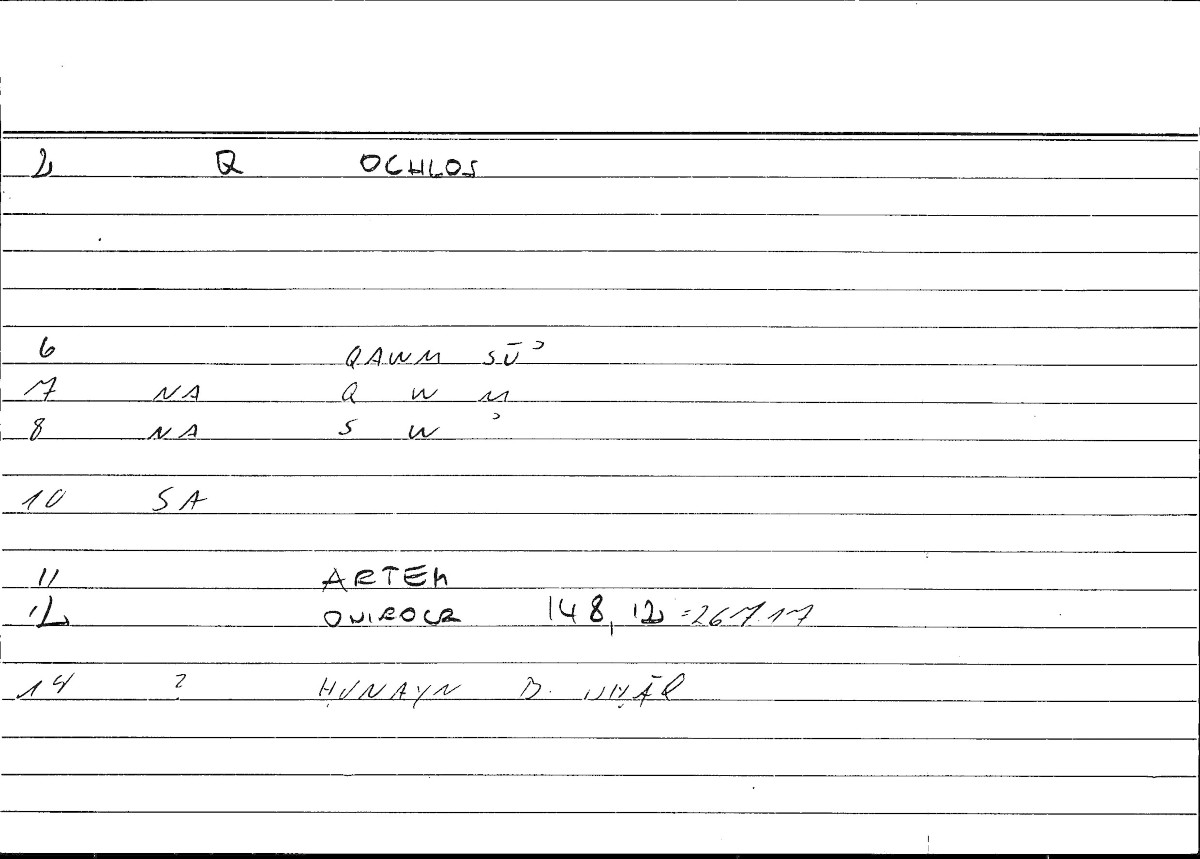 2 Q OCHLOS
6 QAWM SŪʾ
7 NA Q W M
8 NA S W ʾ
10 SA
11 ARTEM
12 ONIROCR 148, 12 = 267.17
14 ? ḤUNAYN B. ISḤĀQ